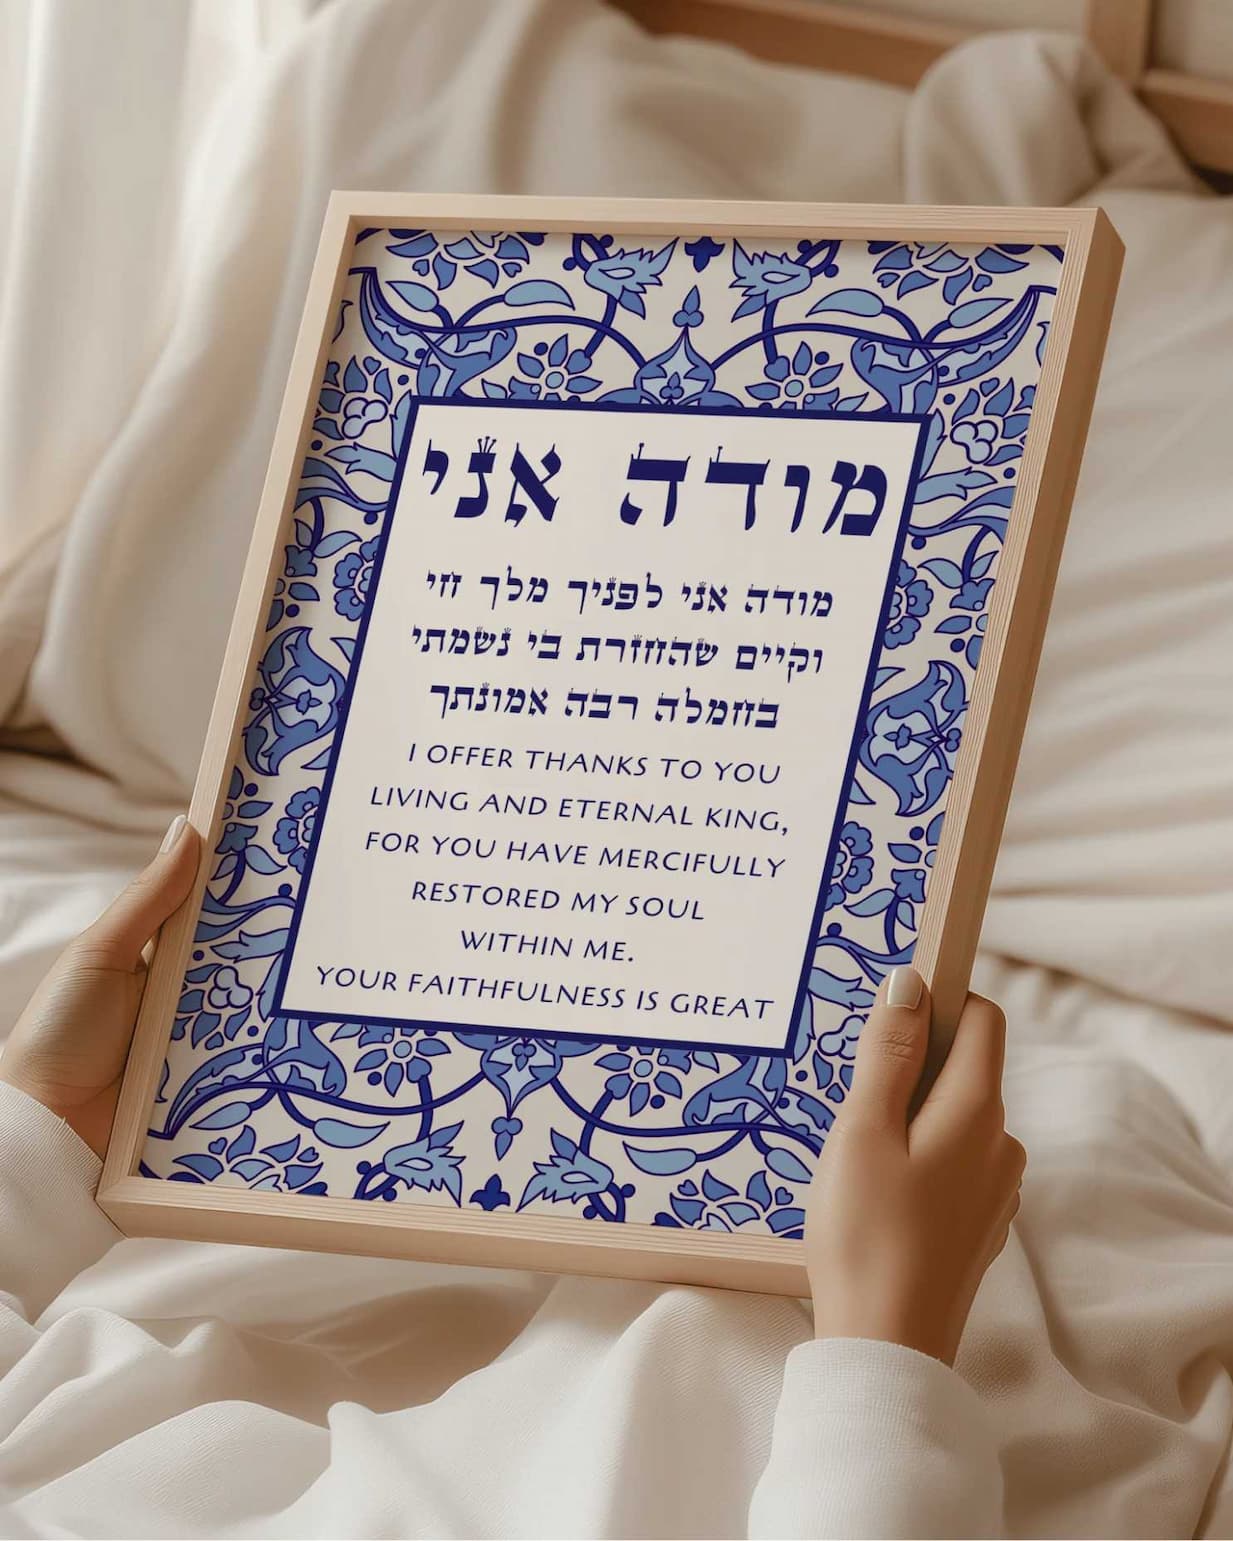 מודה אני
מודה אני לפניך מלך חי
וקיים שהחזרת בי נשמתי
בחמלה רבה אמונתך
I OFFER THANKS TO YOU
LIVING AND ETERNAL KING,
FOR YOU HAVE MERCIFULLY
RESTORED MY SOUL
WITHIN ME.
YOUR FAITHFULNESS IS GREAT